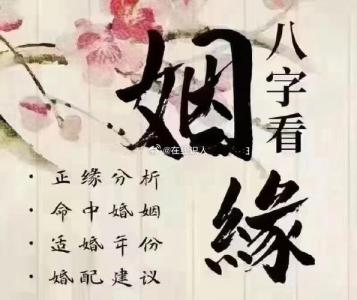 八字看
姻緣
正缘分析
命中婚姻
适婚年份
婚配建议